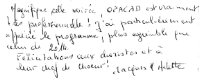 Magnifique soirée. OPACAD est vraiment
très professionnelle ! J'ai particulièrement
apprécié le programme, plus agréable que
celui de Lotte.
Félicitations aux choristes et à
leur chef de chœur ! Jacques